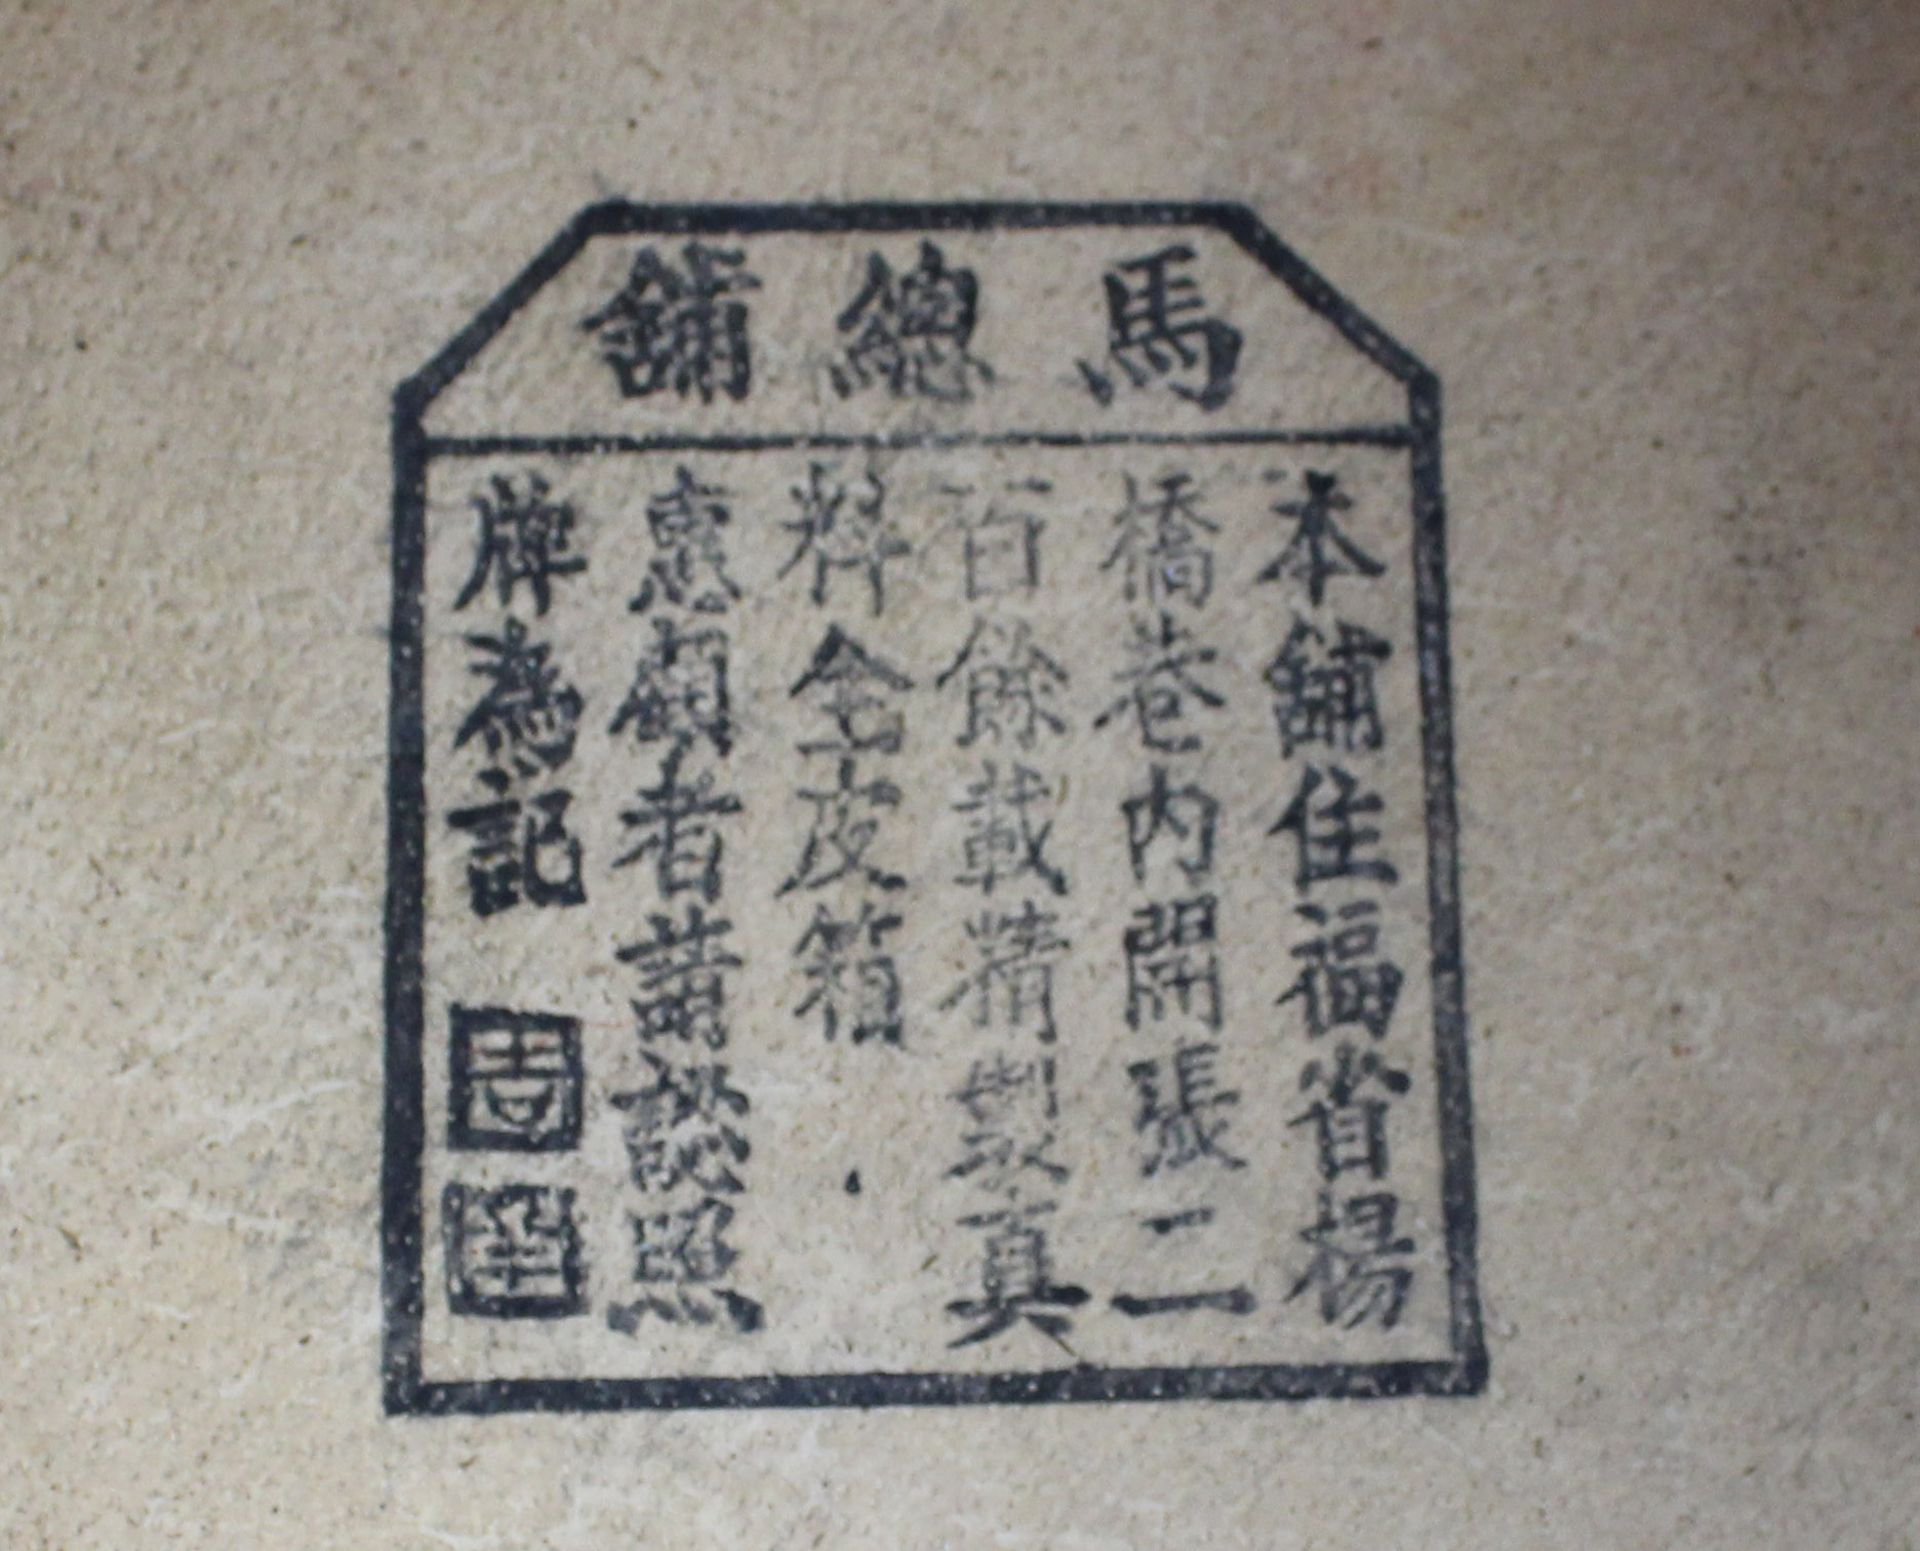 馬總舖
本舖住福省楊
橋巷内開張二
百餘載精製真
料全皮箱
惠顧者請認照
牌為記